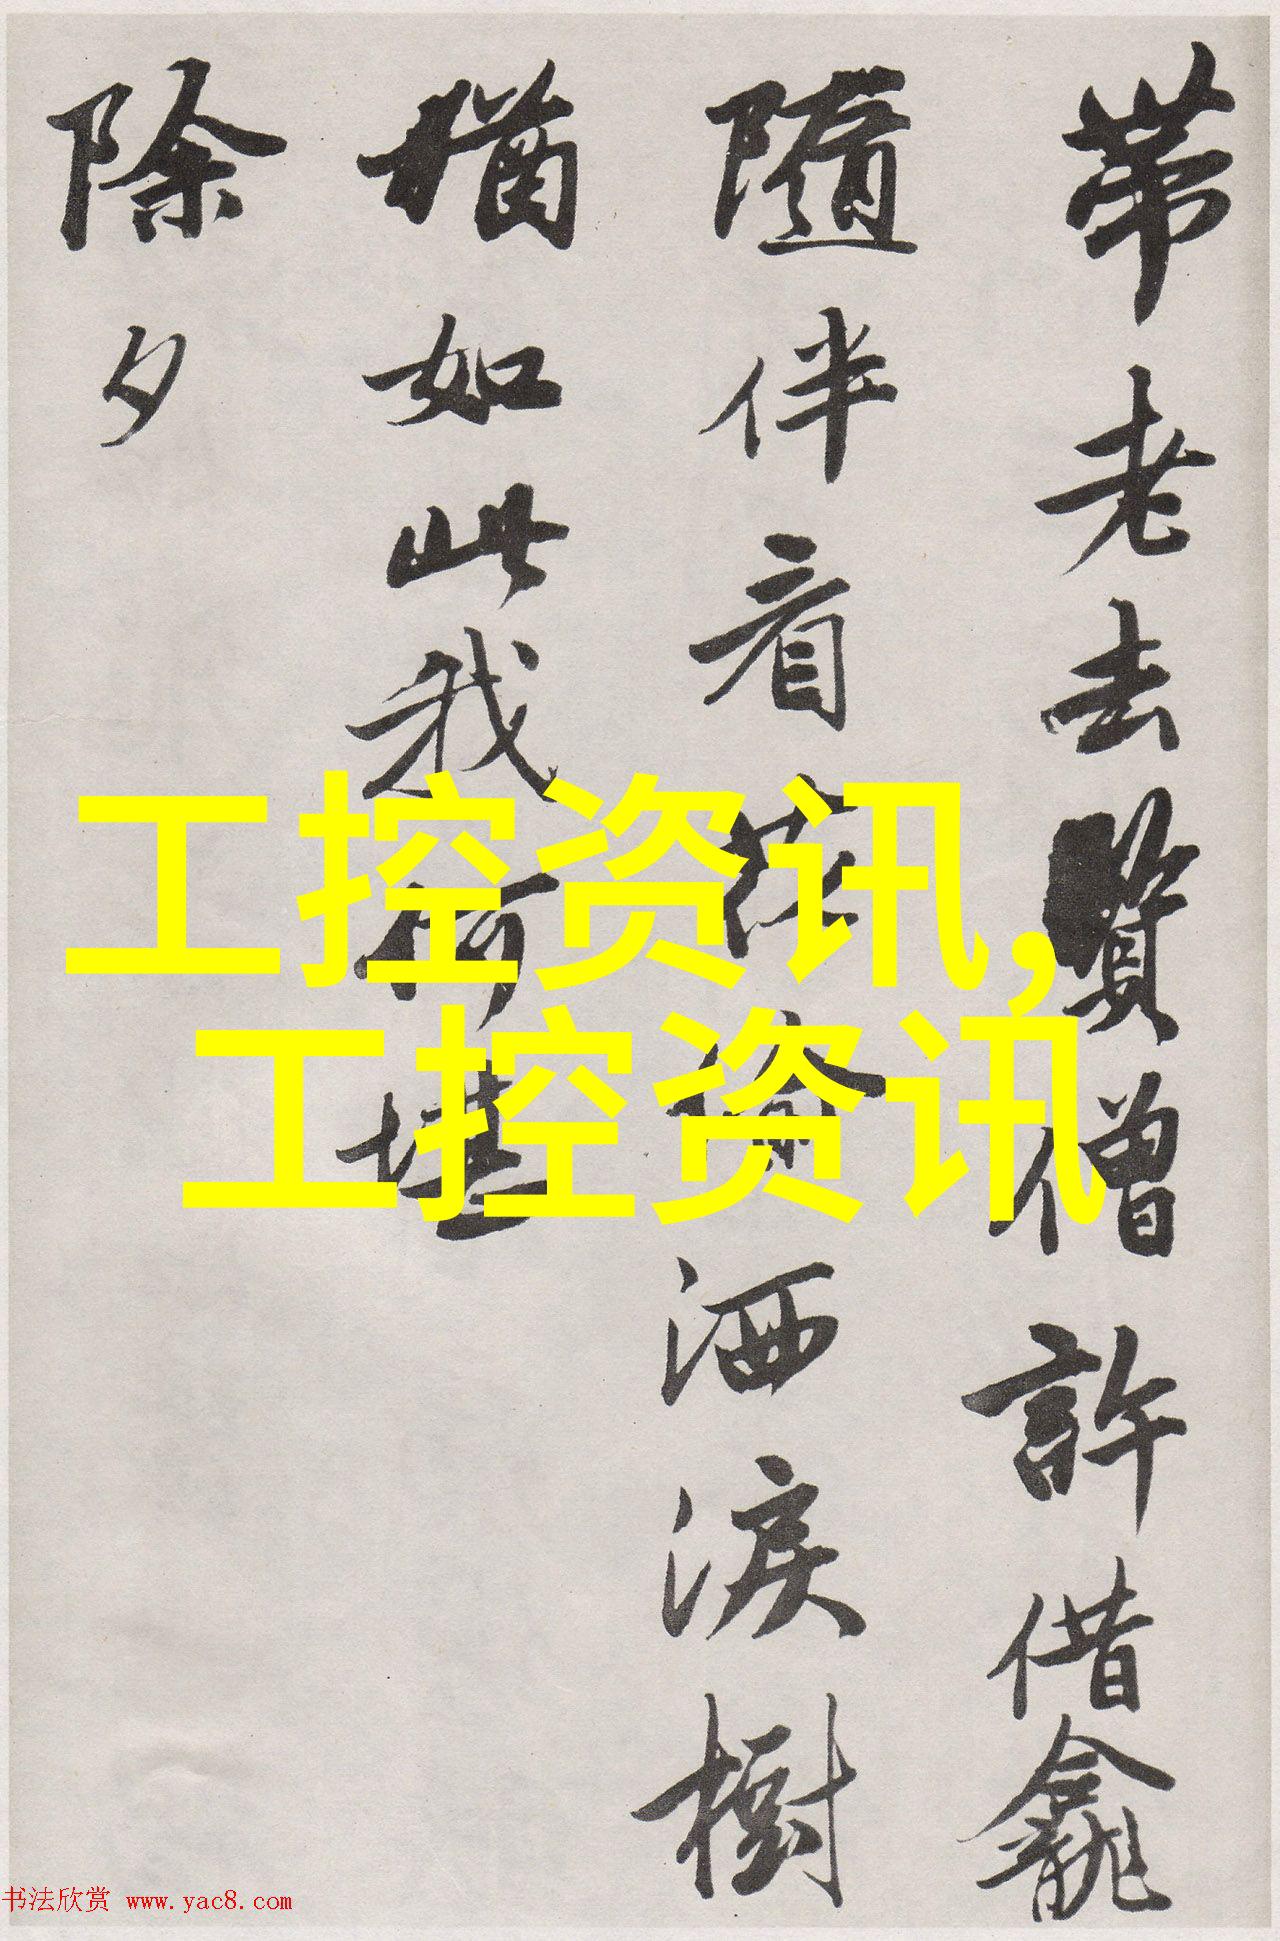 帶老去賢僧許借龕
隨伴看花偷洒淚樹
猶如此我何堪
除夕
工控资讯,
工控资讯
书法欣赏 www.yac8.com